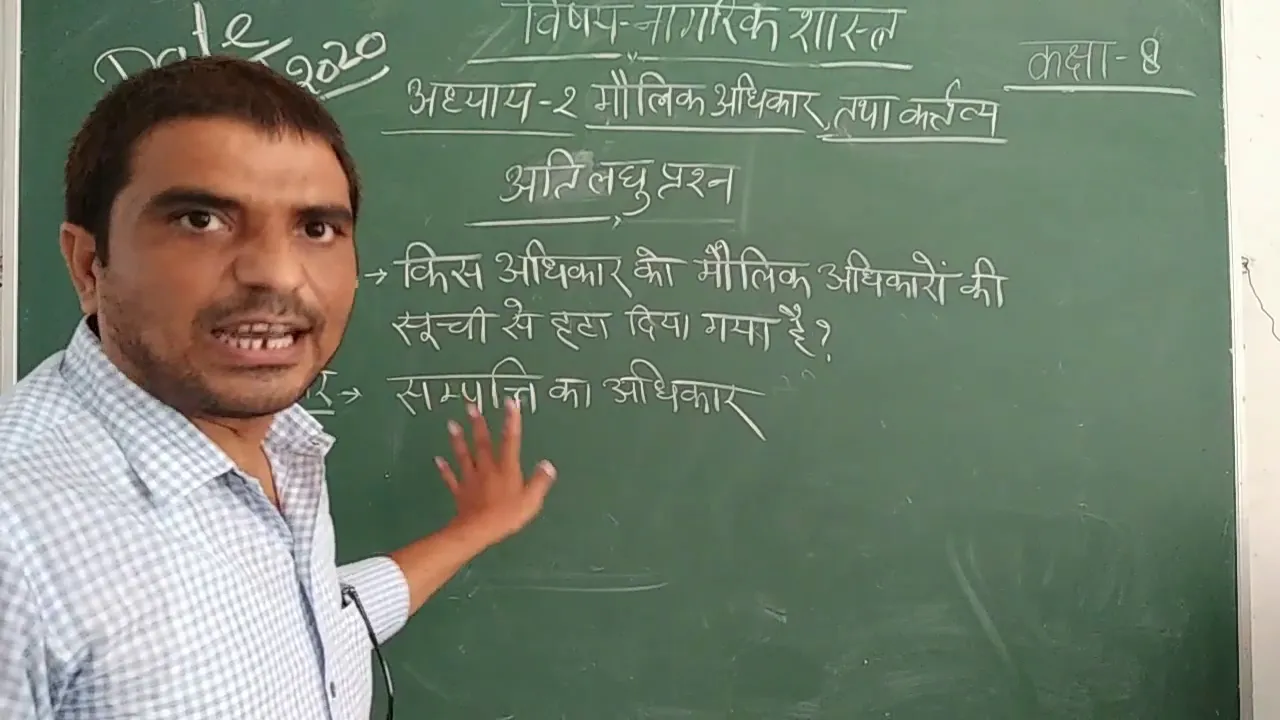 Date
2020
विषय-नागरिक शास्त्र
कक्षा-8
अध्याय-२ मौलिक अधिकार, तथा कर्त्तव्य
अति लघु प्रश्न
→ किस अधिकार को मौलिक अधिकारों की
सूची से हटा दिया गया है?
→ सम्पत्ति का अधिकार